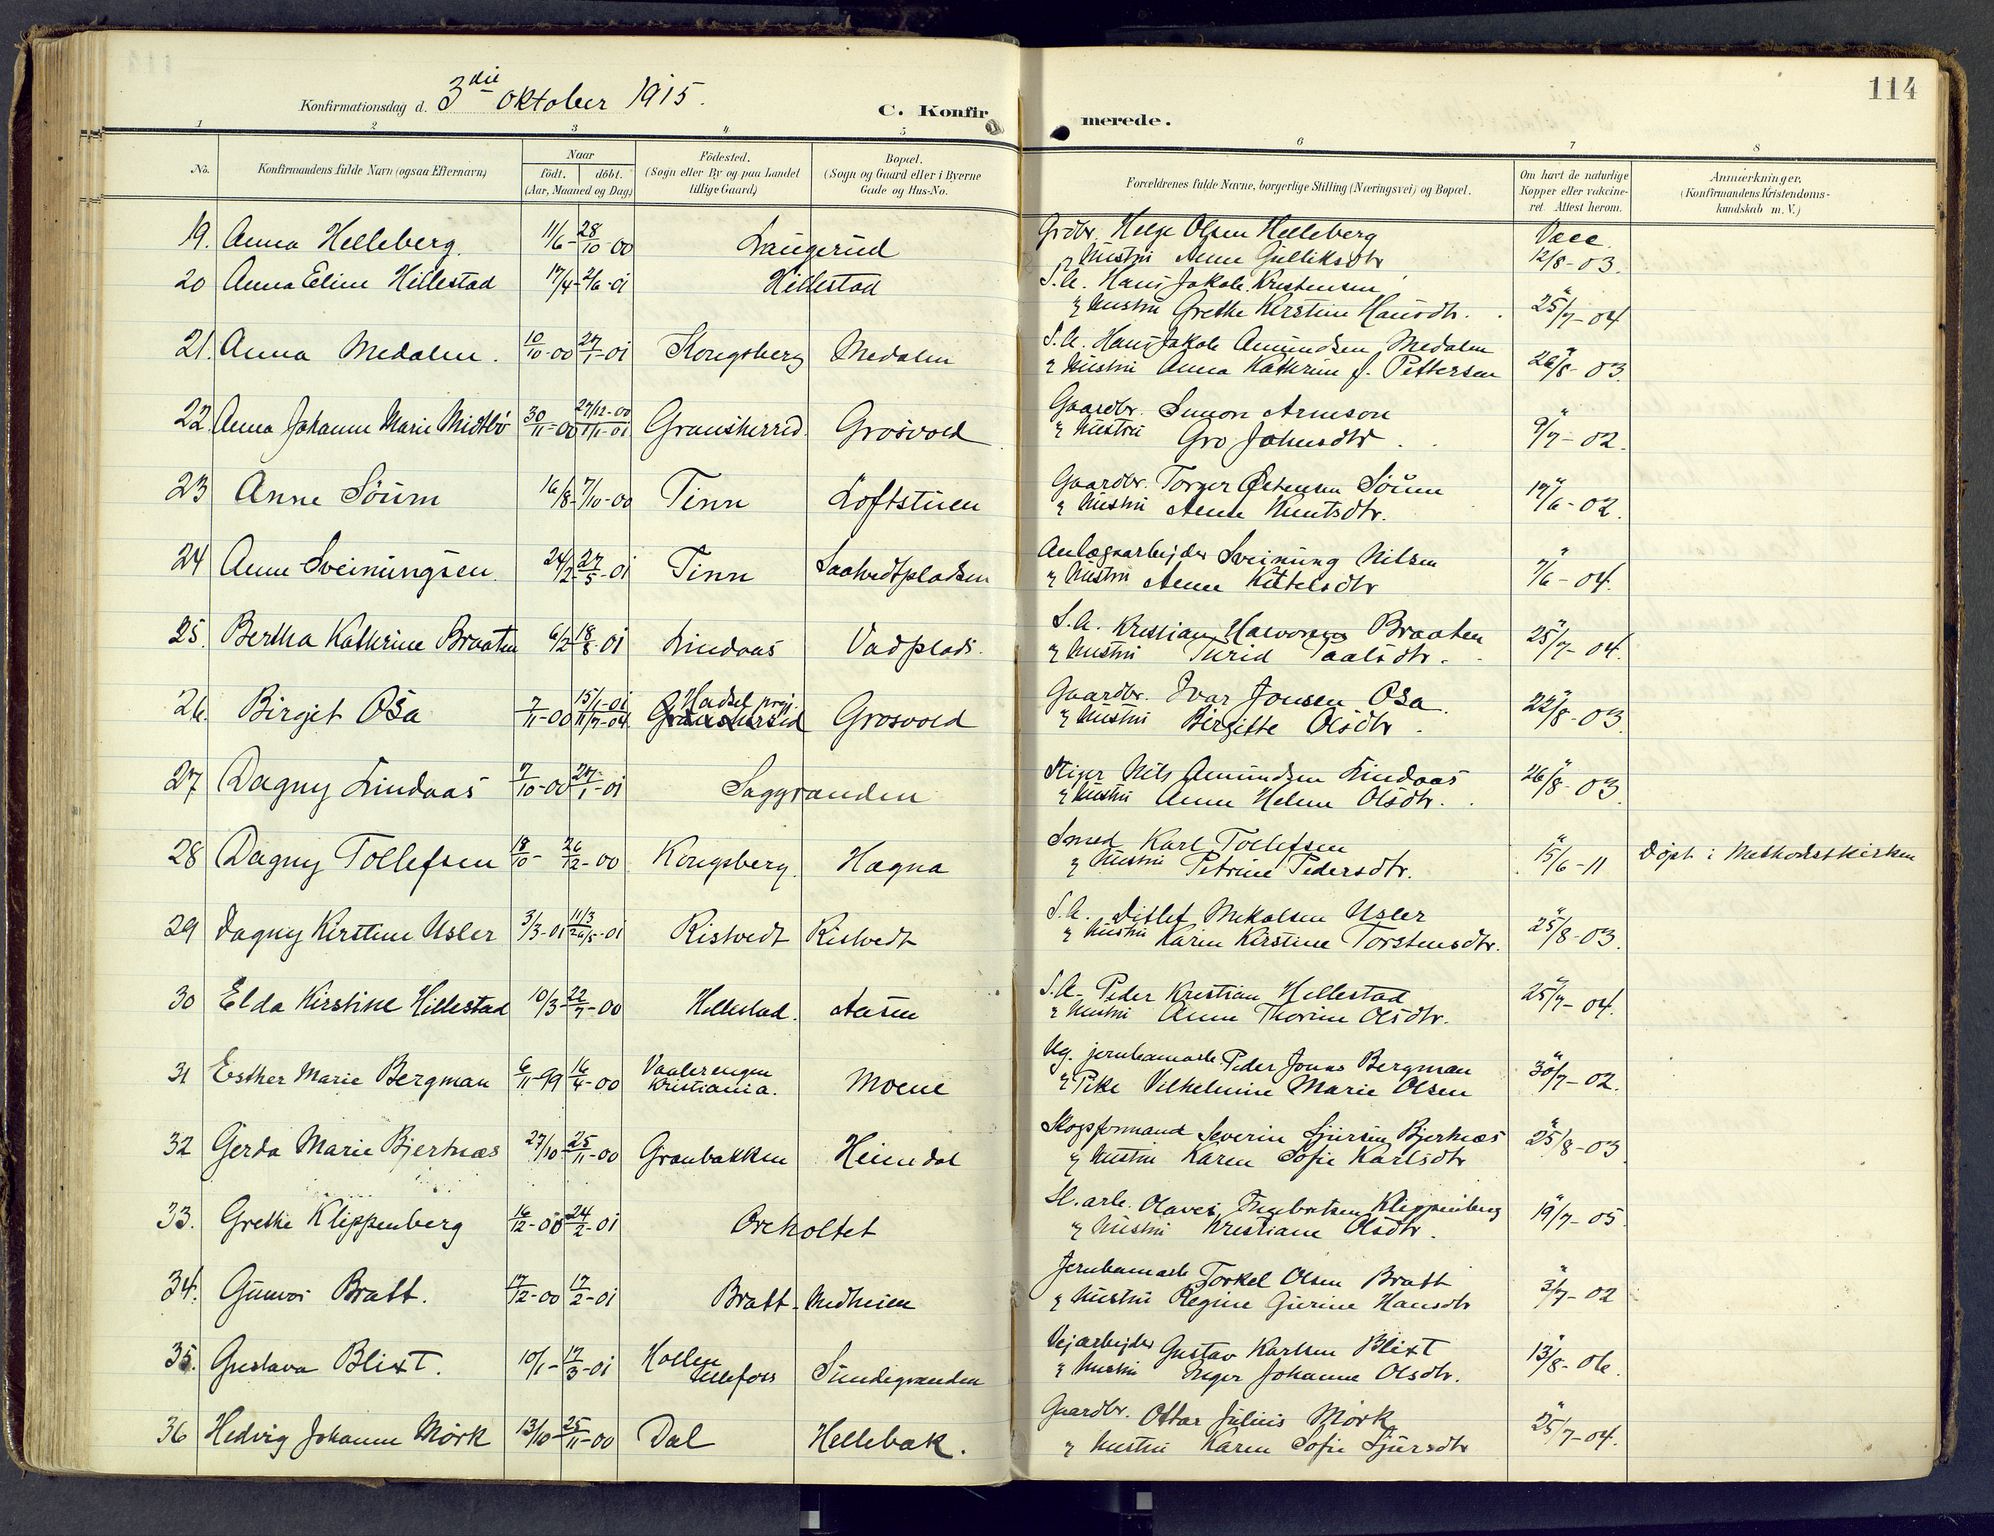 114
Konfirmationsdag d. 3die oktober 1915.
C. Konfirmerede.
1 2 3 4 5 6 7 8
No. Konfirmandens fulde Navn (ogsaa Efternavn) Naar födt. döbt. (Aar, Maaned og Dag) Födested. (Sogn eller By og paa Landet tillige Gaard) Bopæl. (Sogn og Gaard eller i Byerne Gade og Hus-No. Forældrenes fulde Navne, borgerlige Stilling (Næringsvei) og Bopæl. Om havt de naturlige Kopper eller vakcineret. Attest herom. Anmærkninger, (Konfirmandens Kristendomskundskab m. V.)
19. Anna Helleberg. 11/6 - 28/10 00 Laugerud Grdbr. Helge Olsen Helleberg Vacc.
Hustru Anne Gulliksdtr 12/8-03.
20 Anna Eline Hillestad 17/4 - 2/6-01 Hillestad S.A. Hans Jakob Kristensen
& Hustru Grethe Kirstine Hansdtr. " 25/7-04
21. Anna Medalen. 10/10-00 27/1-01 Kongsberg Medalen S.A. Hans Jakob Amundsen Medalen
& Hustru Anna Kathrine f. Pettersen " 26/8-03.
22. Anna Johanne Marie Midtbö 30/11-00 27/12-00 11/1-01 Gransherred. Grosvold Gaardbr. Simon Arneson
& Hustru Gro Johnsdtr. " 9/7-02.
23 Anne Söum 16/8 - 7/10-00 Tinn Loftstuen Gaardbr. Torger Östensen Söum
& Hustru Anne Knutsdtr. " 17/6-02.
24 Anne Sveinungsen. 24/2 27/5-01 Tinn Saatvedtpladsen Anlægsarbejder Sveinung Nilsen
& Hustru Anne Kittelsdtr " 7/6-04.
25. Bertha Kathrine Braaten 6/2 18/8-01 Lindaas Vadplads. S.A. Kristian Halvorsen Braaten
& Hustru Turid Paalsdtr. " 25/7-04.
26. Birgit Osa 7/11-00 15/1-01 11/7-04 Hadsel prgj. Gransherred Grosvold Gaardbr. Ivar Jonsen Osa.
& Hustru Birgitte Olsdtr. " 22/8-03.
27 Dagny Lindaas 7/10-00 27/1-01 Saggranden Stiger Nils Amundsen Lindaas
& Hustru Anne Helene Olsdtr. " 26/8-03.
28 Dagny Tollefsen 18/10- 26/12-00 Kongsberg. Hagna Smed Karl Tollefsen
& Hustru Petrine Pedersdtr. " 15/6-11 Döpt i Methodistkirken
29 Dagny Kirstine Usler 3/3-01 11/3 26/5-01 Ristvedt Ristvedt S.A. Ditlef Mikalsen Usler
& Hustru Karen Kirstine Torstensdtr. " 25/8-03.
30 Elda Kirstine Hillestad 10/3-22/7-00 Hillestad. Aasen S.A. Peder Kristian Hillestad
& Hustru Anne Thorine Olsdtr. " 25/7-04.
31 Esther Marie Bergman 6/11-99 16/4-00 Vaalerengen Kristiania. Moene Ug. jernbanearb. Peder Jonas Bergman
& Pike Vilhelmine Marie Olsen " 30/7-02.
32 Gerda Marie Bjertnæs 27/10-25/11-00 Granbakken Heimdal Skogsformand Severin Sjursen Bjertnæs
& Hustru Karen Sofie Karlsdtr " 25/8-03
33. Grethe Klippenberg 16/12-00 24/2-01 Oreholtet Olaves Ingebretsen Klippenberg
& Hustru Kristiane Olsdtr. " 19/7-05
34. Gunvor Bratt. 17/12-00 17/2-01 Bratt - Jernbanearb. Torkel Olsen Bratt
& Hustru Regine Gurine Hansdtr " 3/7-02
35. Gustava Blixt. 10/1-17/3-01 Hollen Ulefoss Sundegranden Vejarbejder Gustav Karlsen Blixt
& Hustru Inger Johanne Olsdtr. " 13/8-06.
36 Hedvig Johanne Mörk 13/10 25/11-00 Dal Hellebæk. Gaardbr. Ottar Julius Mörk
& Hustru Karen Sofie Sjursdtr " 25/7-04.